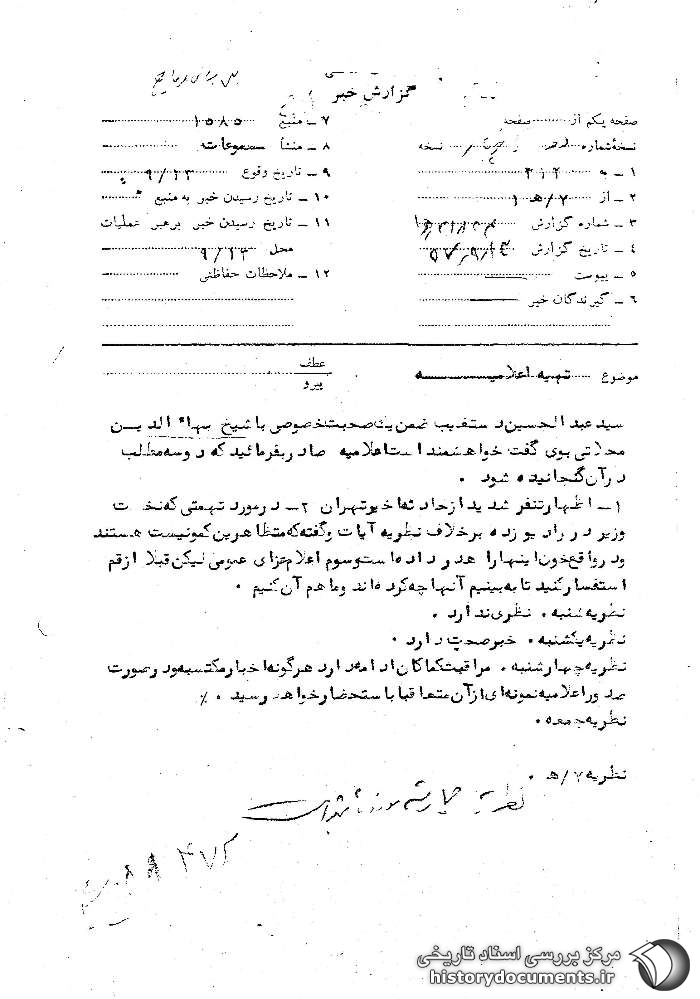 گزارش خبر
صفحه یکم از صفحه
۷ ـ منبع ۱۰۸۵
نسخهٔ شماره نسخه
۸ ـ منشأ مسموعات
۱ ـ به ۳۱۲
۹ ـ تاریخ وقوع ۹/۱۳
۲ ـ از ۷/ه ۱
۱۰ ـ تاریخ رسیدن خبر به منبع
۳ ـ شماره گزارش
۱۱ ـ تاریخ رسیدن خبر برهبر عملیات
۴ ـ تاریخ گزارش ۵۷/۹/۱۴
محل ۹/۱۳
۵ ـ پیوست
۱۲ ـ ملاحظات حفاظتی
۶ ـ گیرندگان خبر
موضوع تهیه اعلامیه
عطف
پیرو
سید عبدالحسین دستغیب ضمن یک صحبت خصوصی با شیخ بهاء الدین
محلاتی بوی گفت خواهشمند است اعلامیه صادر بفرمائید که دو سه مطلب
در آن گنجانیده شود .
۱ـ اظهار تنفر شدید از حادثه اخیر تهران ۲ـ در مورد تهمتی که نخست
وزیر در رادیو زده برخلاف نظریه آیات و گفته که متظاهرین کمونیست هستند
و در واقع خون اینها را هدر داده است و سوم اعلام عزای عمومی لیکن قبلا از قم
استفسار کنید تا به بینیم آنها چه کرده‌اند و ما هم آن کنیم .
نظریه شنبه . نظری ندارد .
نظریه یکشنبه . خبر صحت دارد .
نظریه چهارشنبه . مراقبت کماکان ادامه دارد هرگونه اخبار مکتسبه و در صورت
صدور اعلامیه نمونه‌ای از آن متعاقبا باستحضار خواهد رسید . ٪
نظریه جمعه .
نظریه ۷/ه .
مرکز بررسی اسناد تاریخی
historydocuments.ir